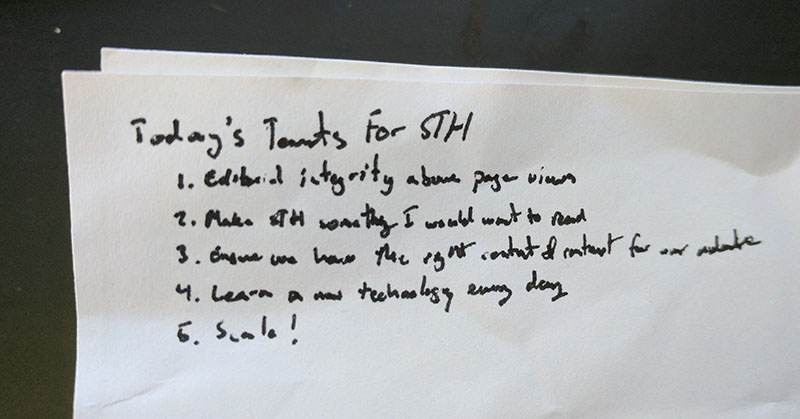 Today's Tenets For STH
1. Editorial integrity above page views
2. Make STH something I would want to read
3. Ensure we have the right content & context for our
4. Learn a new technology every day
5. Scale!